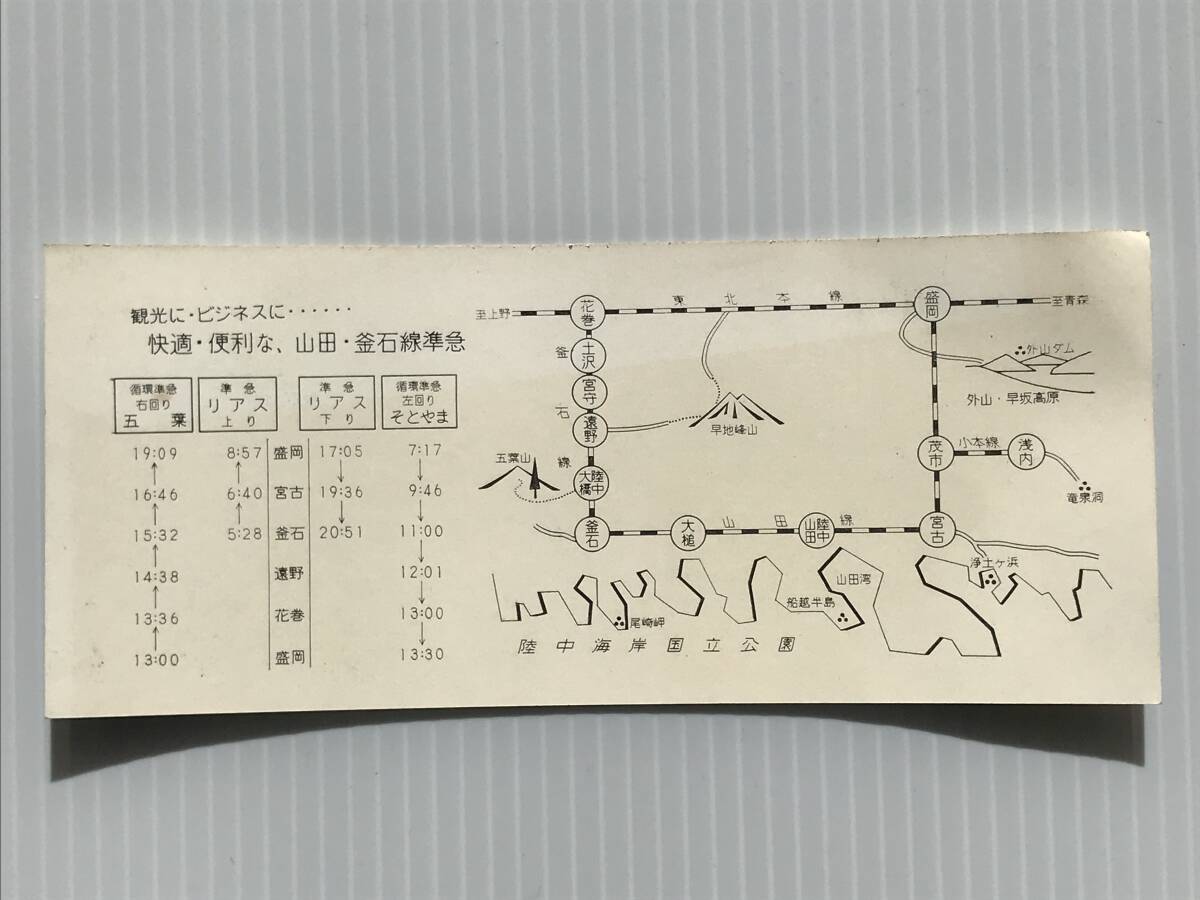 観光に・ビジネスに・・・・・・
快適・便利な、山田・釜石線準急
循環準急 右回り 五葉
準急 リアス 上り
準急 リアス 下り
循環準急 左回り そとやま
19:09 8:57 盛岡 17:05 7:17
16:46 6:40 宮古 19:36 9:46
15:32 5:28 釜石 20:51 11:00
14:38 遠野 12:01
13:36 花巻 13:00
13:00 盛岡 13:30
至上野
花巻
東北本線
盛岡
至青森
釜石線
土沢
宮守
遠野
陸中大橋
釜石
五葉山
早地峰山
外山ダム
外山・早坂高原
茂市
小本線
浅内
竜泉洞
大槌
山田線
陸中山田
宮古
浄土ヶ浜
山田湾
船越半島
尾崎岬
陸中海岸国立公園